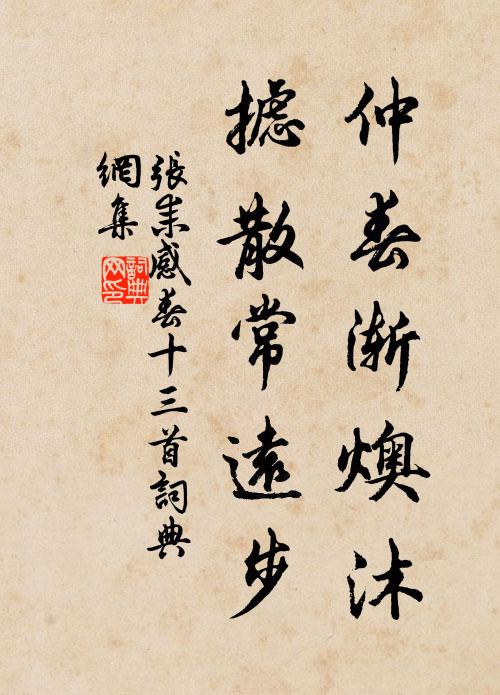 仲春渐燠沐
摅散常遠步
張耒感春十三首詞典
網集
詞典網印